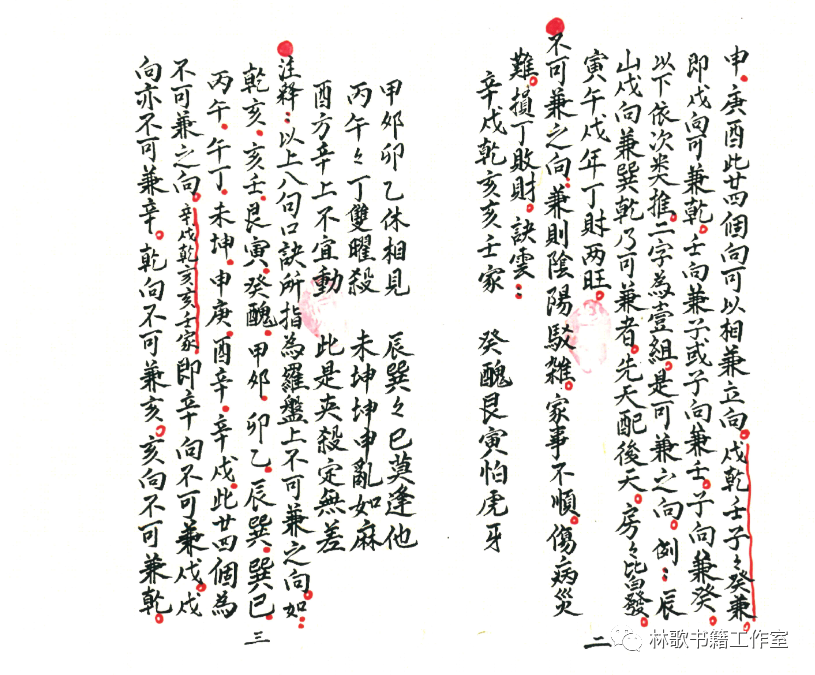 申。庚酉此廿四個向可以相兼立向。戌乾壬子々癸兼。
即戌向可兼乾。壬向兼子或子向兼壬。子向兼癸。
以下依次类推。二字為壹組。是可兼之向。例：辰
山戌向兼巽乾乃可兼者。先天配後天。房々皆發。
寅午戌年丁財两旺。
不可兼之向：兼則陰陽駁雜。家事不順。傷病災
難。損丁敗財。訣雲：
辛戌乾亥亥壬家　癸醜艮寅怕虎牙
二
甲夘卯乙休相見　辰巽々巳莫逢他
丙午々丁雙曜殺　未坤坤申亂如麻
酉方辛上不宜動　此是夾殺定無差
注释：以上八句口訣所指為羅盤上不可兼之向。如：
乾亥。亥壬。艮寅。癸醜。甲夘。卯乙。辰巽。巽巳。
丙午。午丁。未坤。申庚。酉辛。辛戌。此廿四個為
不可兼之向。辛戌乾亥亥壬家即辛向不可兼戌。戌
向亦不可兼辛。乾向不可兼亥。亥向不可兼乾。
三
林歌书籍工作室